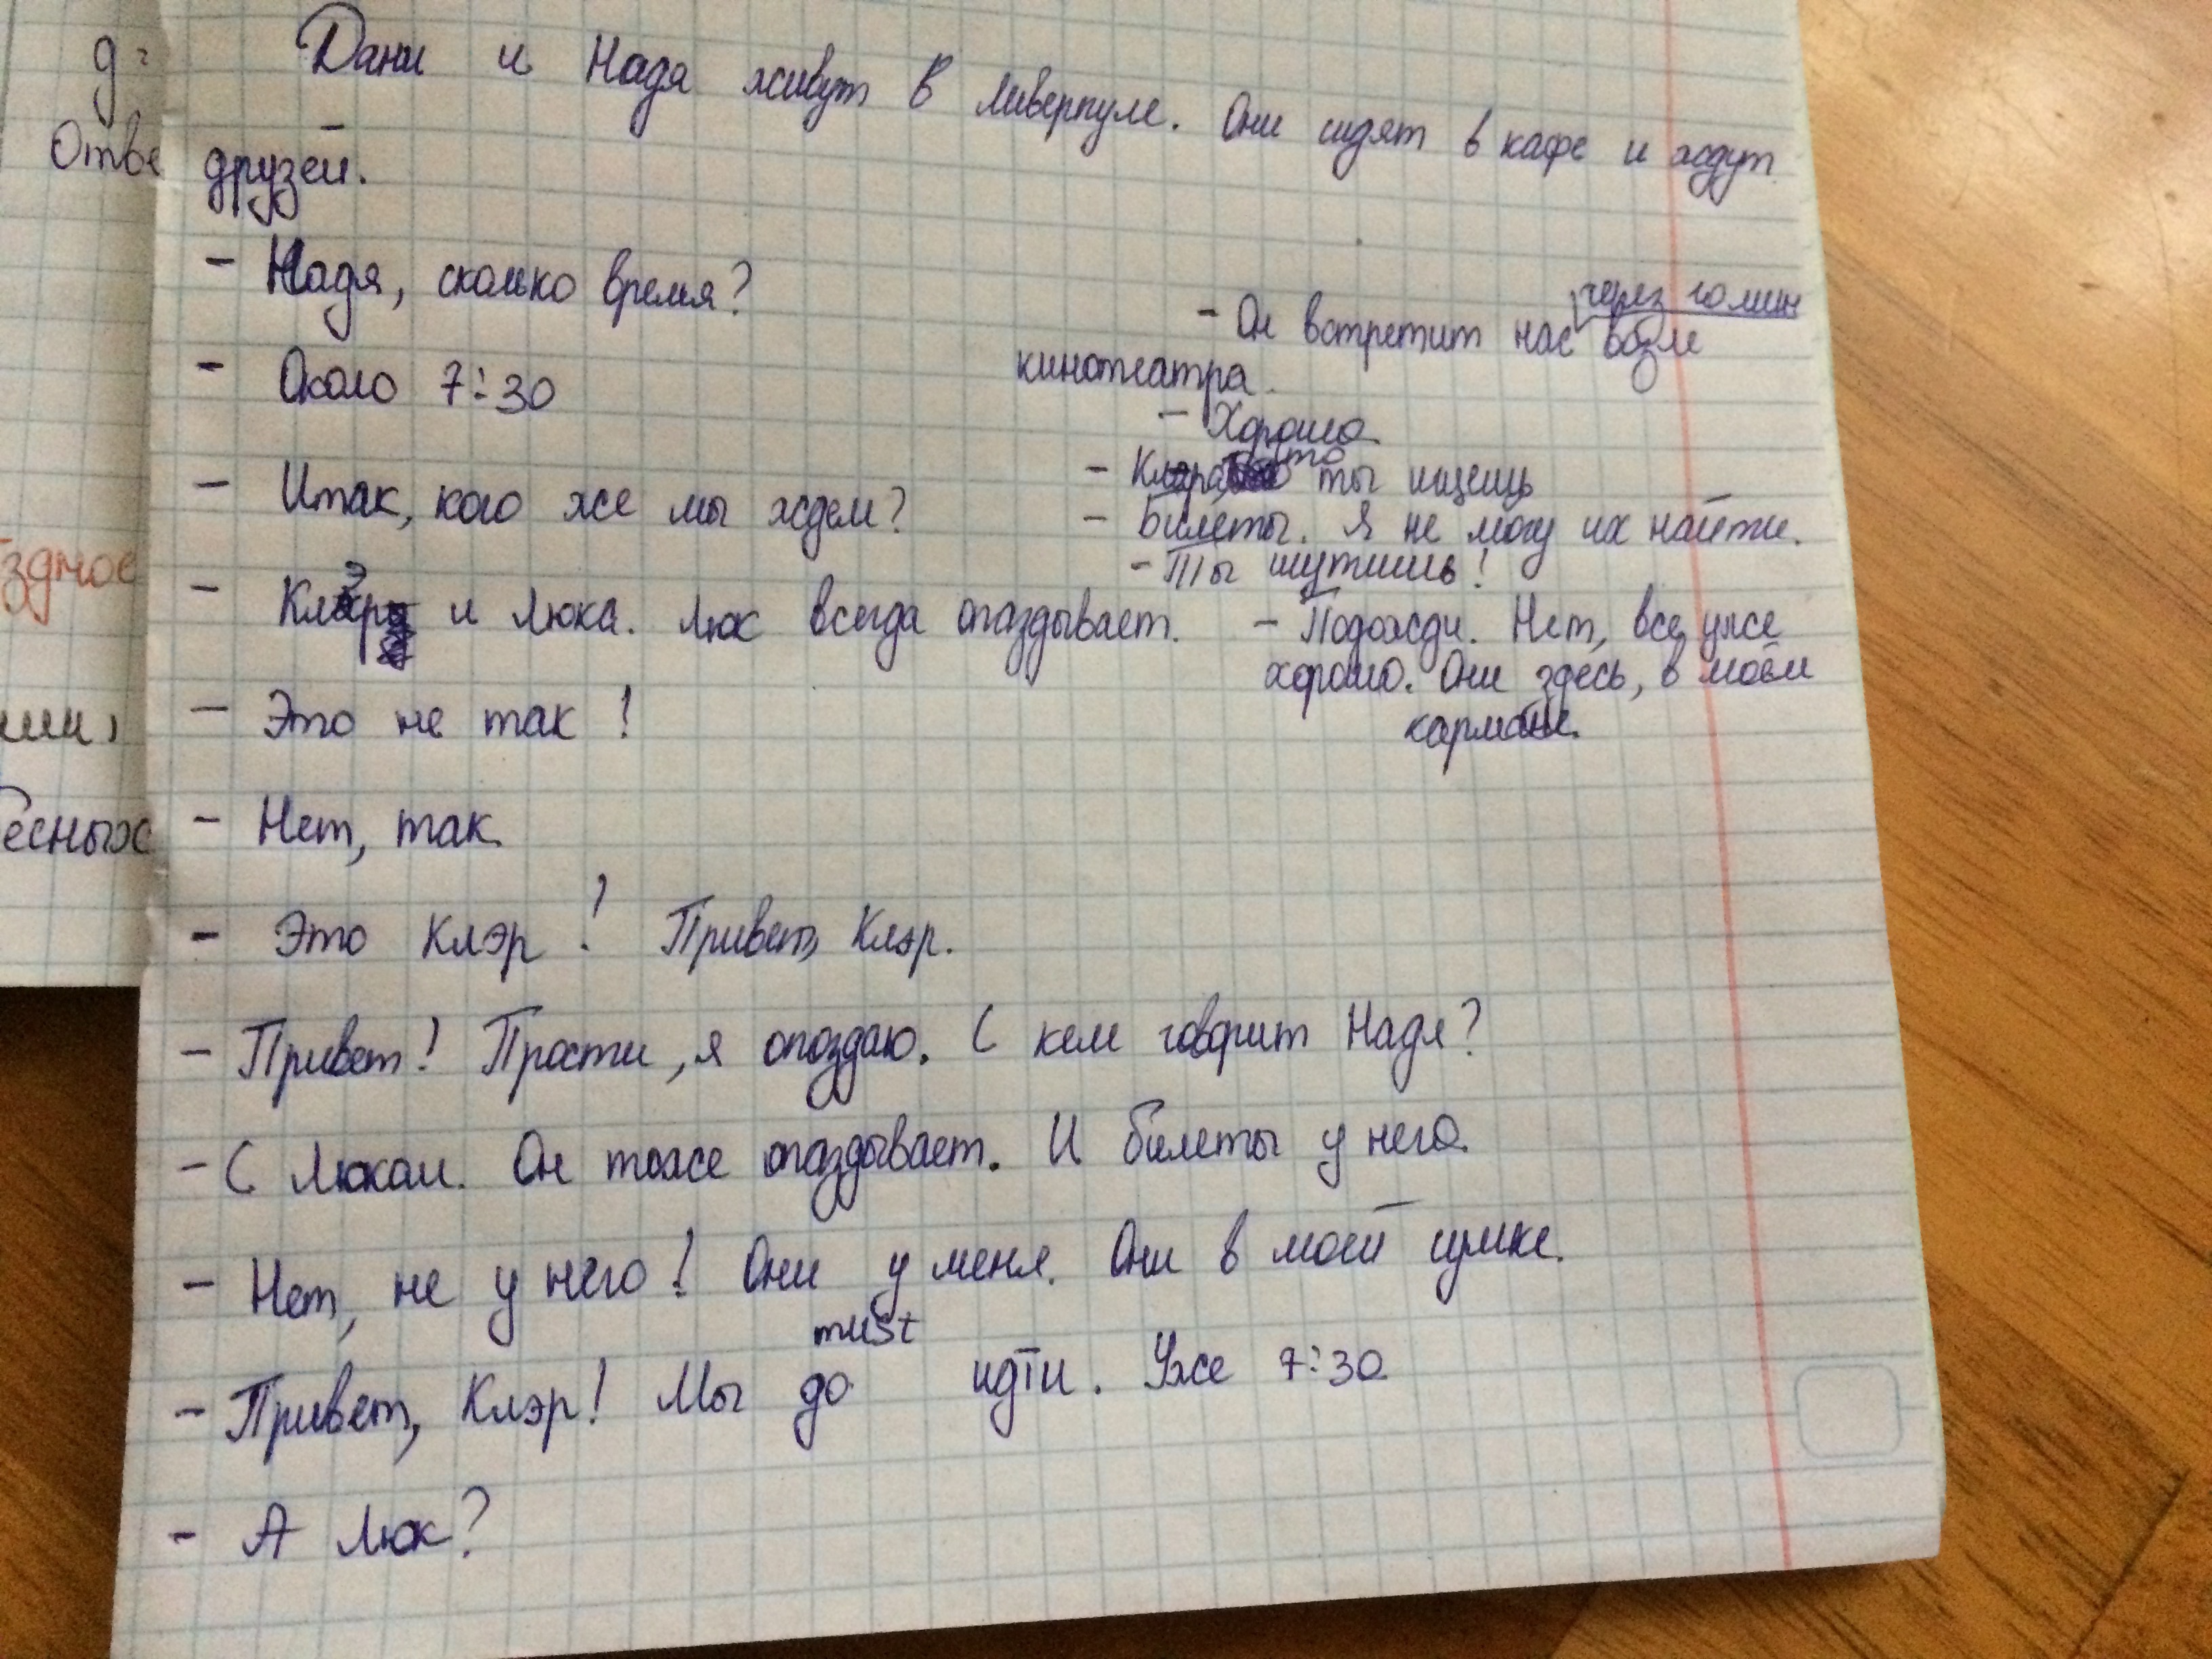 Дани и Надя живут в Ливерпуле. Они сидят в кафе и ждут
друзей.
- Надя, сколько время?
- Около 7:30
- Итак, кого же мы ждем?
- Клэр и Люка. Люк всегда опаздывает.
- Это не так!
- Нет, так.
- Это Клэр! Привет, Клэр.
- Привет! Прости, я опоздаю. С кем говорит Надя?
- С Люком. Он тоже опаздывает. И билеты у него.
- Нет, не у него! Они у меня. Они в моей сумке.
must
- Привет, Клэр! Мы до идти. Уже 7:30
- А Люк?
через 10 мин
- Он встретит нас возле
кинотеатра.
- Хорошо
- Клара, что ты ищещь
- Билеты. Я не могу их найти.
- Ты шутишь!
- Подожди. Нет, все уже
хорошо. Они здесь, в моём
кармане.
д:
Отве
здное
ши,
есных